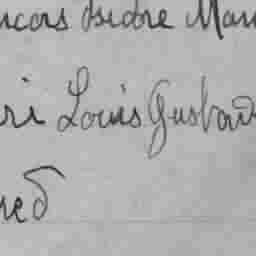 ncois Isidre Mau
ri Louis Gustav
red